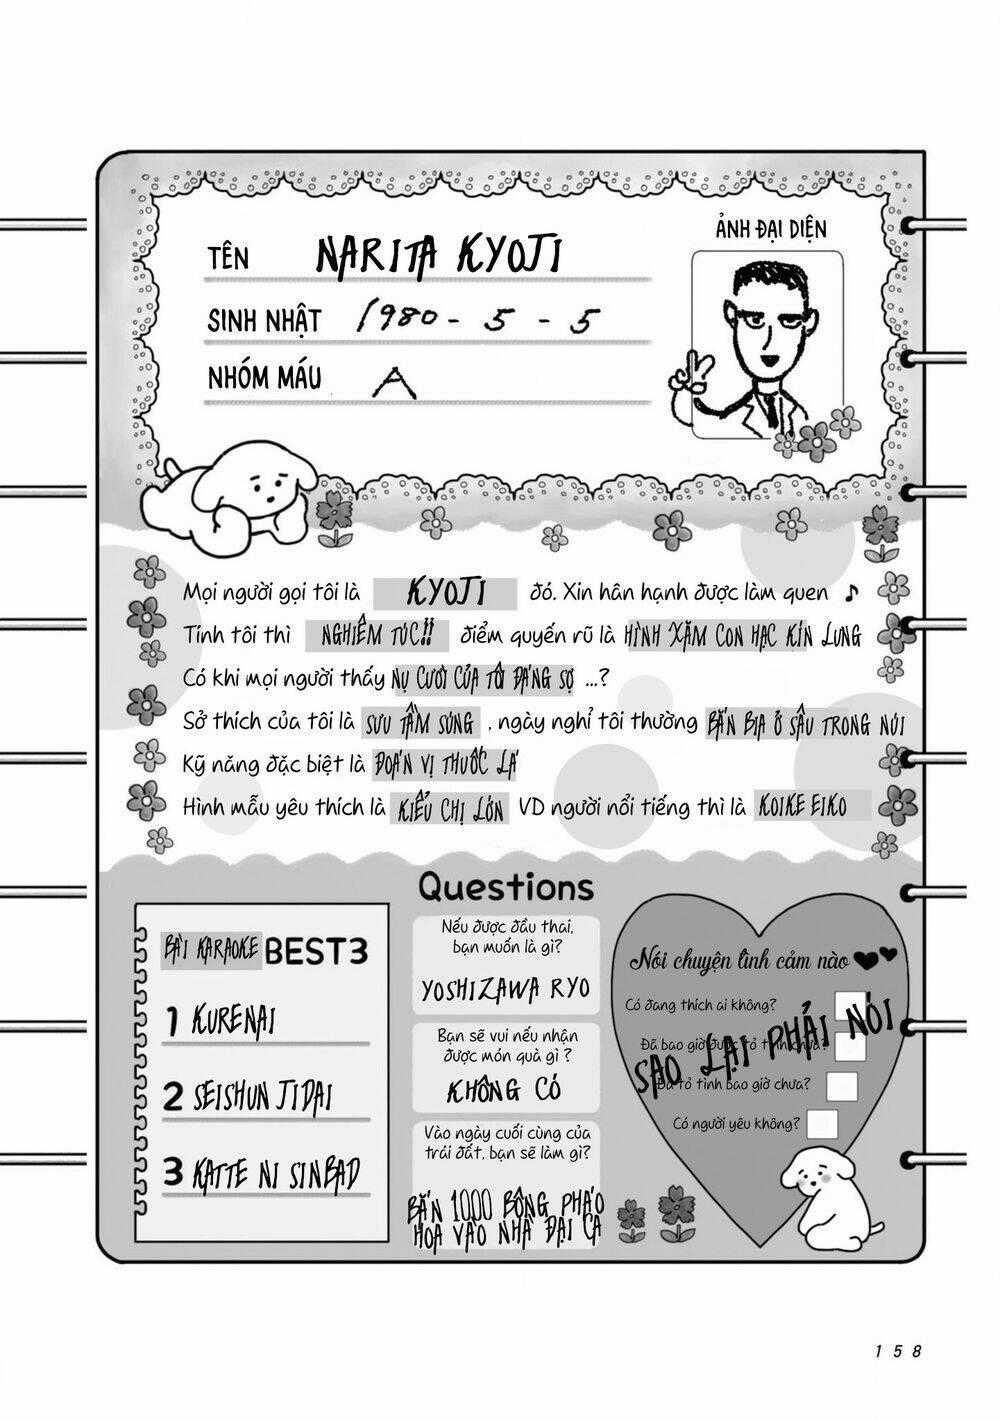 ẢNH ĐẠI DIỆN
TÊN NARITA KYOJI
SINH NHẬT 1980 - 5 - 5
NHÓM MÁU A
Mọi người gọi tôi là KYOJI đó. Xin hân hạnh được làm quen ♪
Tính tôi thì NGHIÊM TÚC!! điểm quyến rũ là HÌNH XĂM CON HẠC KÍN LƯNG
Có khi mọi người thấy NỤ CƯỜI CỦA TÔI ĐÁNG SỢ ...?
Sở thích của tôi là SƯU TẦM SÚNG , ngày nghỉ tôi thường BẮN BIA Ở SÂU TRONG NÚI
Kỹ năng đặc biệt là ĐOÁN VỊ THUỐC LÁ
Hình mẫu yêu thích là KIỂU CHỊ LỚN VD người nổi tiếng thì là KOIKE EIKO
BÀI KARAOKE BEST3
1 KURENAI
2 SEISHUN JIDAI
3 KATTE NI SINBAD
Questions
Nếu được đầu thai,
bạn muốn là gì?
YOSHIZAWA RYO
Bạn sẽ vui nếu nhận
được món quà gì ?
KHÔNG CÓ
Vào ngày cuối cùng của
trái đất, bạn sẽ làm gì?
BẮN 1000 BÔNG PHÁO
HOA VÀO NHÀ ĐẠI CA
Nói chuyện tình cảm nào
Có đang thích ai không?
Đã bao giờ được tỏ tình chưa?
Đã tỏ tình bao giờ chưa?
Có người yêu không?
SAO LẠI PHẢI NÓI
158